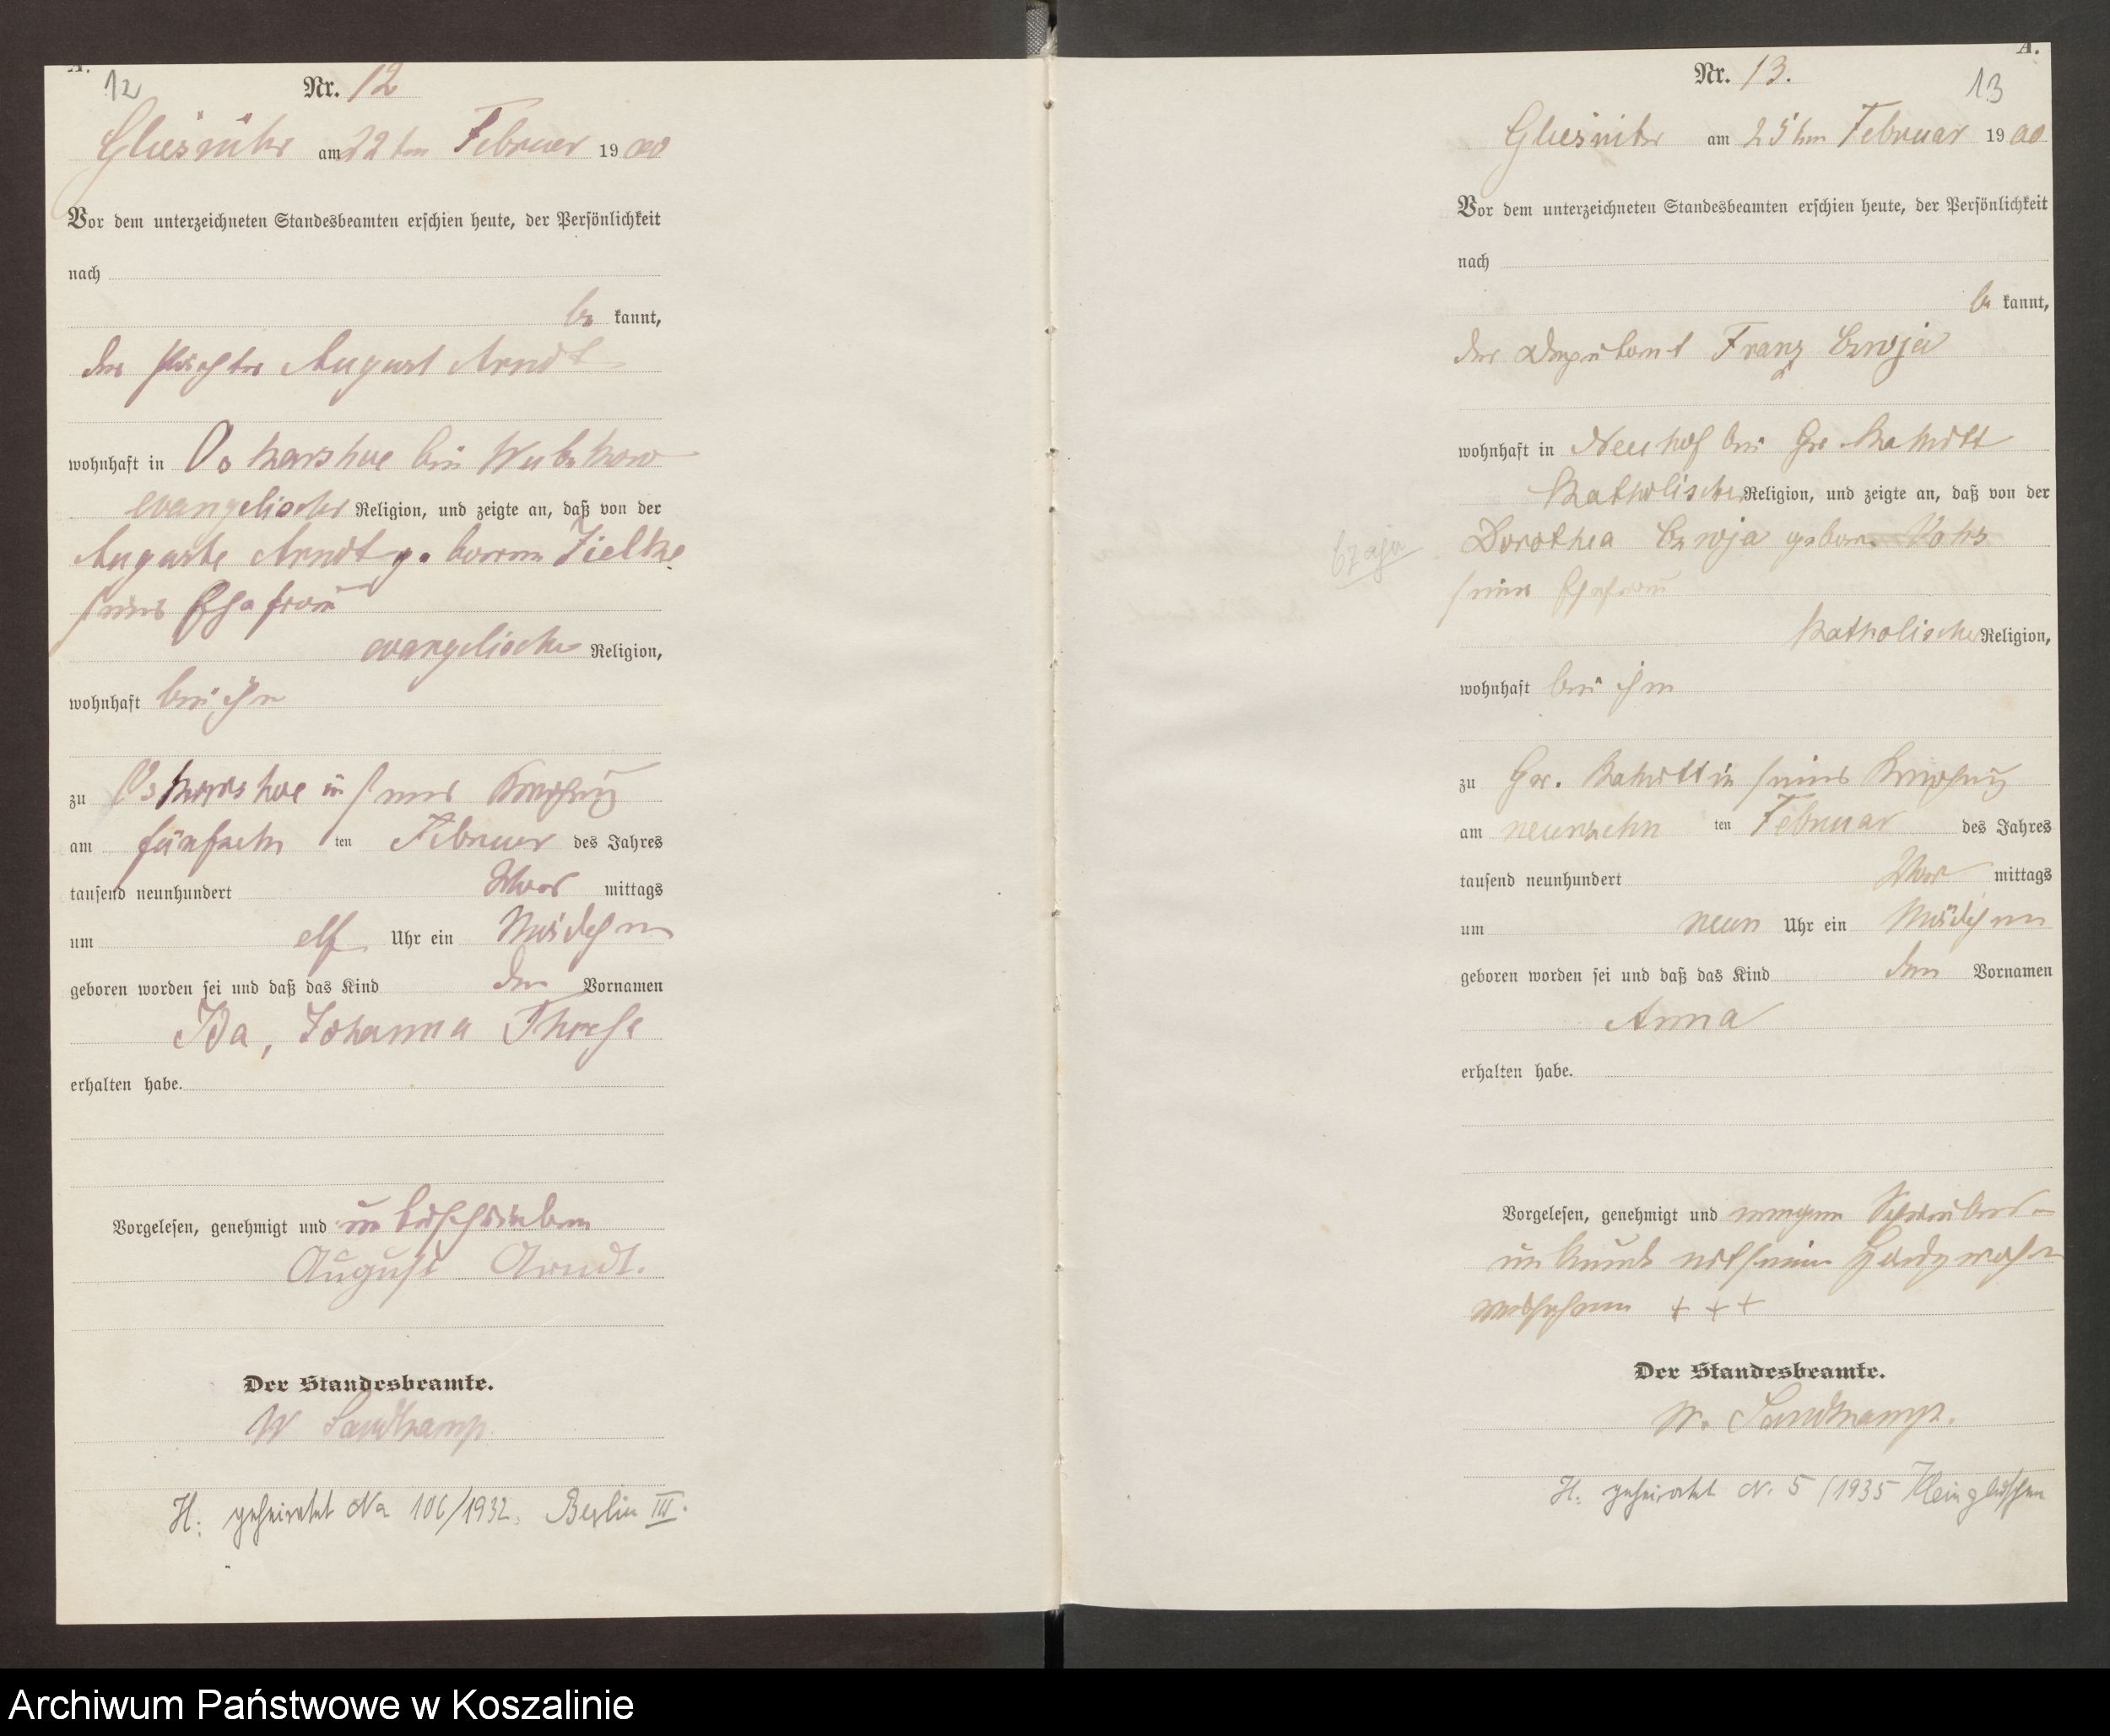 A.
12
Nr. 12
am 22ten Februar 1900
Vor dem unterzeichneten Standesbeamten erschien heute, der Persönlichkeit
nach
be kannt,
der Pächter August Arndt
wohnhaft in Oskarshoe bei
evangelischer Religion, und zeigte an, daß von der
Auguste Arndt geborenen Zielke
seiner Ehefrau
evangelischer Religion,
wohnhaft bei ihm
zu Oskarshoe in seiner Behausung
am fünfzehn ten Februar des Jahres
tausend neunhundert Vor mittags
um elf Uhr ein Mädchen
geboren worden sei und daß das Kind den Vornamen
Ida, Johanna Therese
erhalten habe.
Vorgelesen, genehmigt und unterschrieben
August Arndt.
Der Standesbeamte.
W Sandkamp.
H: geheiratet No 106/1932. Berlin III.
A.
Nr. 13.
13
am 25ten Februar 1900
Vor dem unterzeichneten Standesbeamten erschien heute, der Persönlichkeit
nach
be kannt,
der Deputant Franz
wohnhaft in Neuhof bei Gr.
katholischer Religion, und zeigte an, daß von der
Dorothea geborenen
seiner Ehefrau
katholischer Religion,
wohnhaft bei ihm
zu Gr. in seiner Behausung
am neunzehn ten Februar des Jahres
tausend neunhundert Vor mittags
um neun Uhr ein Mädchen
geboren worden sei und daß das Kind den Vornamen
Anna
erhalten habe.
Vorgelesen, genehmigt und wegen Schreibens-
unkunde mit seinem Handzeichen
versehen + + +
Der Standesbeamte.
W. Sandkamp.
H: geheiratet N. 5/1935
Archiwum Państwowe w Koszalinie